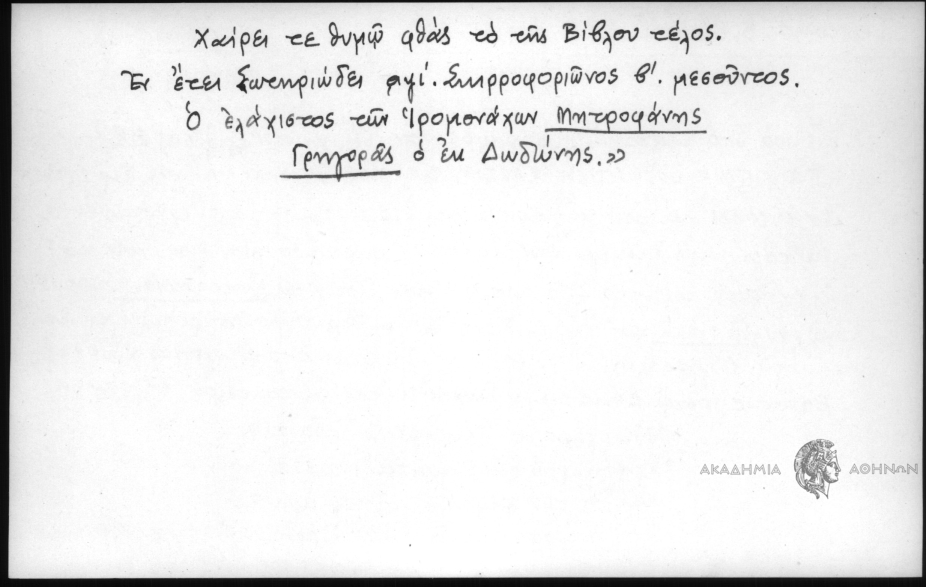 Χαίρει τε θυμῷ φθάς τὸ τῆς Βίβλου τέλος.
Ἐν ἔτει Σωτηριώδει αχί. Σκιρροφοριῶνος β΄. μεσοῦντος.
Ὁ ἐλάχιστος τῶν Ἱρομονάχων Μητροφάνης
Γρηγορᾶς ὁ ἐκ Δωδώνης.»
ΑΚΑΔΗΜΙΑ ΑΘΗΝΩΝ